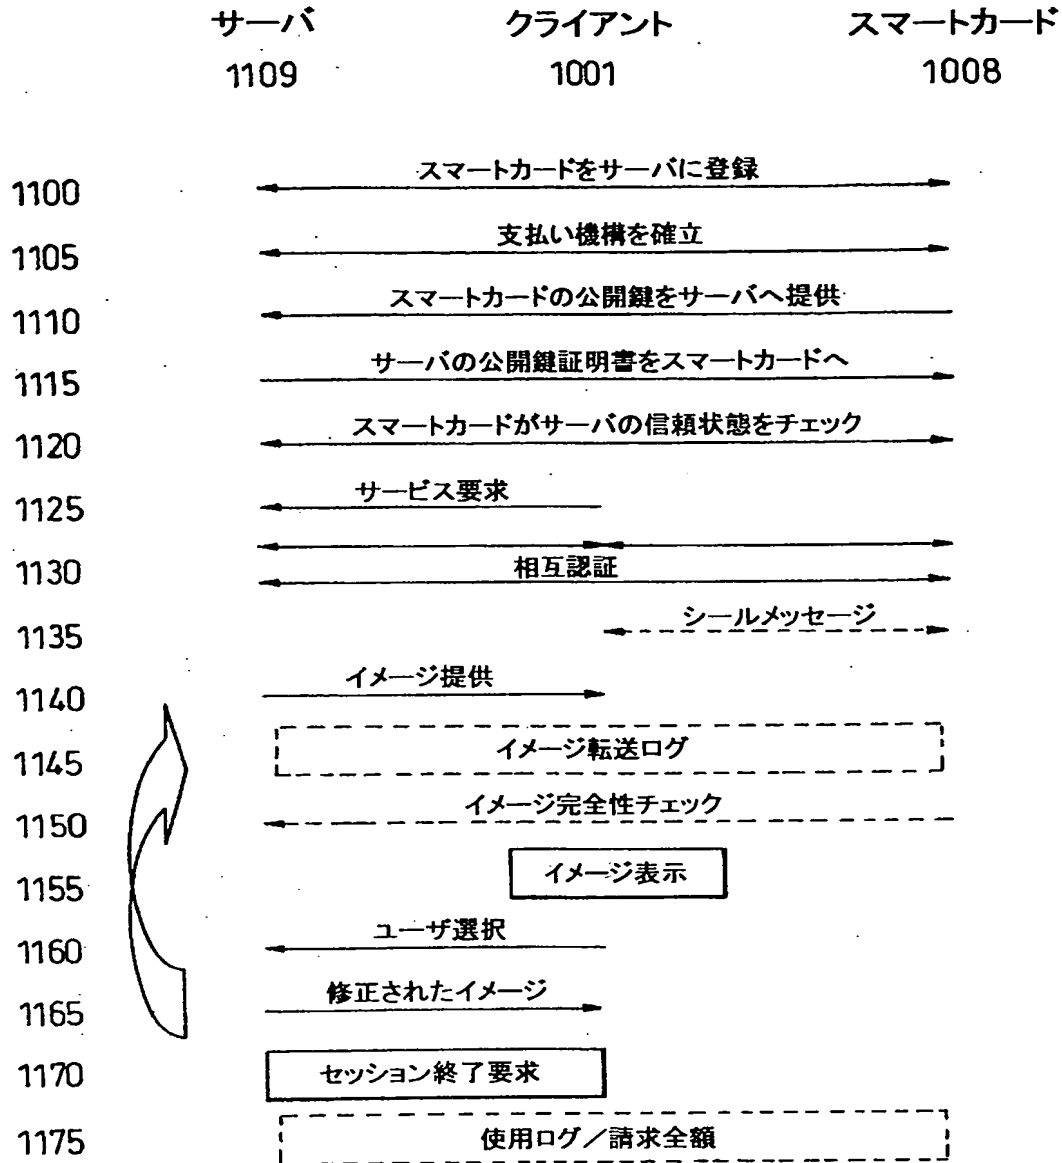 サーバ クライアント スマートカード
1109 1001 1008
1100 スマートカードをサーバに登録
1105 支払い機構を確立
1110 スマートカードの公開鍵をサーバへ提供
1115 サーバの公開鍵証明書をスマートカードへ
1120 スマートカードがサーバの信頼状態をチェック
1125 サービス要求
1130 相互認証
1135 シールメッセージ
1140 イメージ提供
1145 イメージ転送ログ
1150 イメージ完全性チェック
1155 イメージ表示
1160 ユーザ選択
1165 修正されたイメージ
1170 セッション終了要求
1175 使用ログ/請求全額